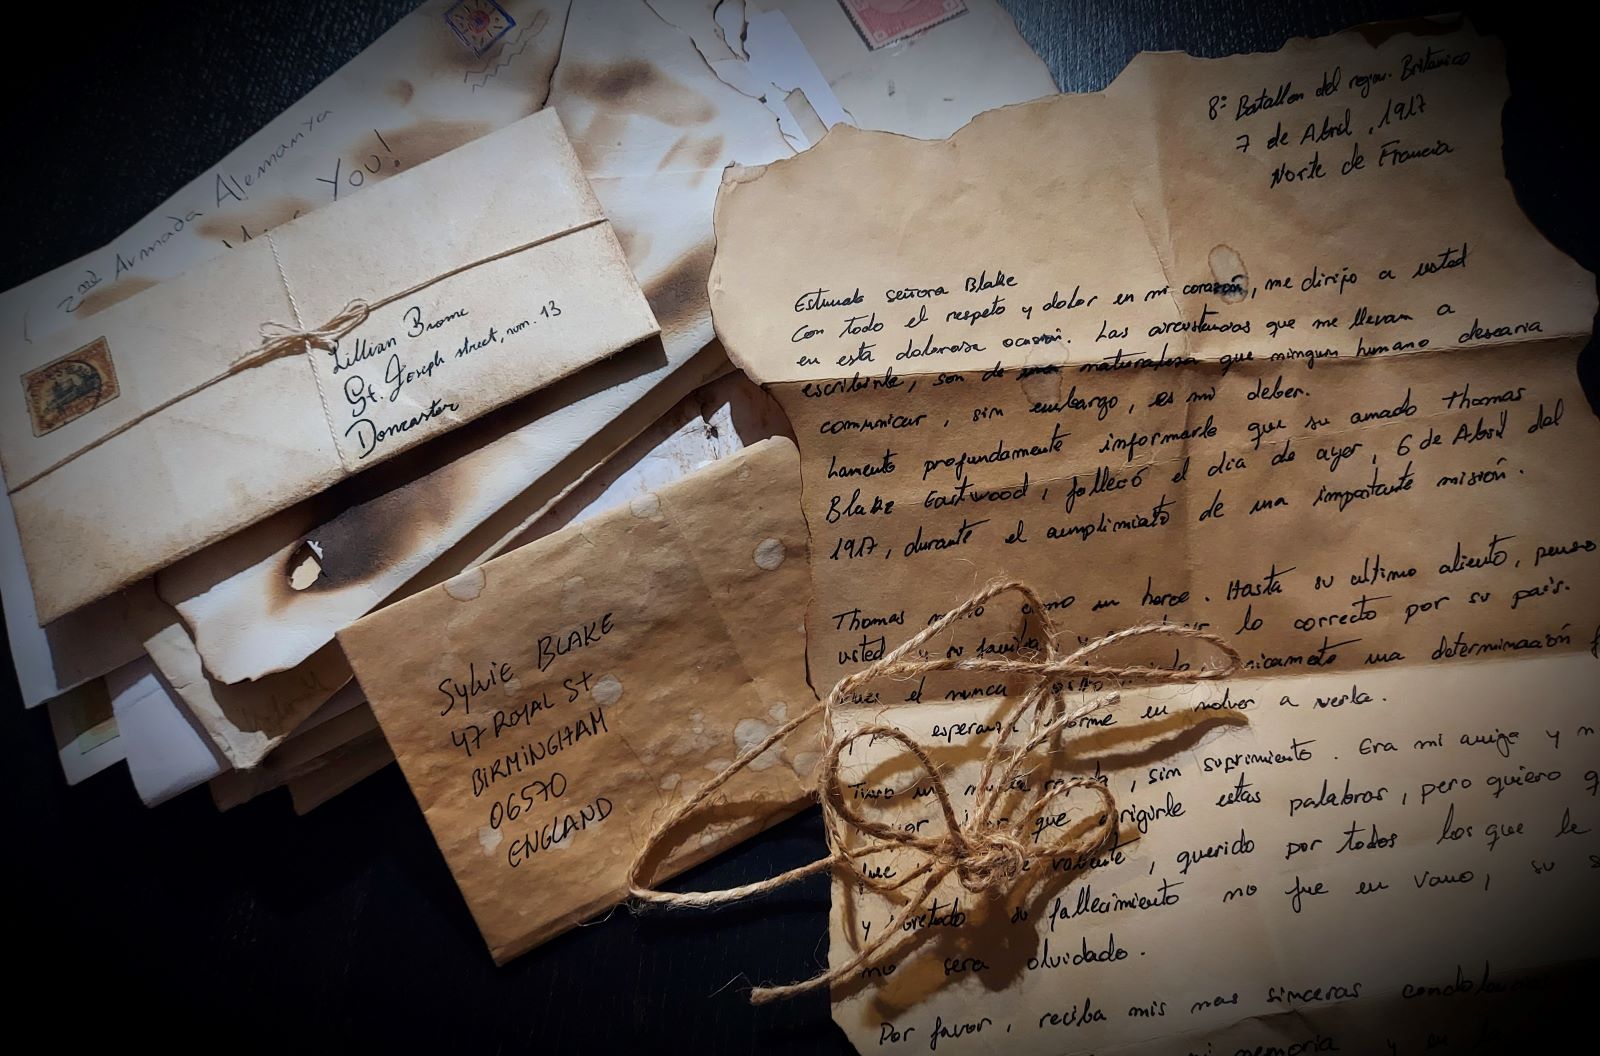 2nd Armada Alemanya
You!
Lillian Brome
St. Joseph street, num. 13
Doncaster
Sylvie BLAKE
47 ROYAL St
BiRMiNGHAM
06570
ENGLAND
8º Batallon del regim. Britanico
7 de Abril, 1917
Norte de Francia
Estimada señora Blake
Con todo el respeto y dolor en mi corazón, me dirijo a usted
en esta dolorosa ocasión. Las circustancias que me llevan a
escribirle, son de una naturaleza que ningun humano desearia
comunicar, sin embargo, es mi deber.
Lamento profundamente informarle que su amado Thomas
Blake Eastwood, falleció el dia de ayer, 6 de Abril del
1917, durante el cumplimiento de una importante misión.
Thomas como un heroe. Hasta su ultimo aliento, penso
usted y su familia lo correcto por su pais.
el nunca una determinación
esperanza enorme en volver a verla.
Tuvo una rapida, sin suprimiento. Era mi amigo y
que dirigirle estas palabras, pero quiero
valiente, querido por todos los que le
y su fallecimiento no fue en vano, su
no sera olvidado.
Por favor, reciba mis mas sinceras
mi memoria y en